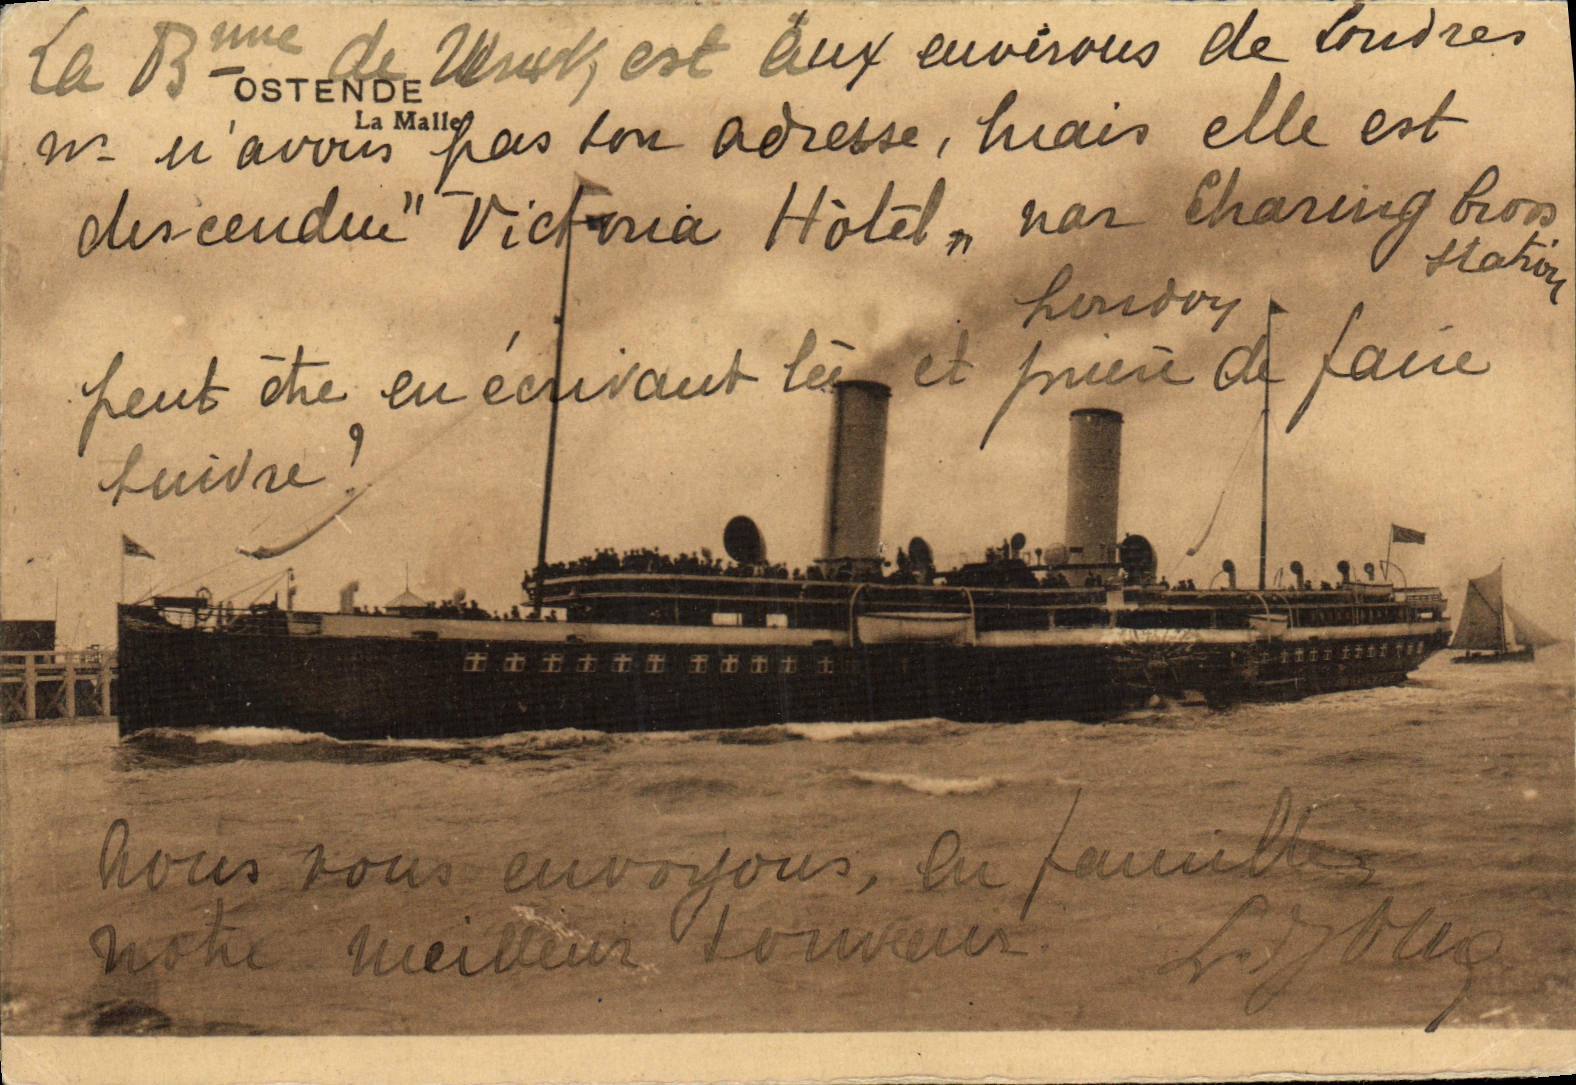 La Bnne de est aux environs de Londres
OSTENDE
La Malle
ns n'avons pas son adresse, mais elle est
descendue "Victoria Hôtel„ Charing Cross
station
London
peut être en écrivant là et prière de faire
suivre!
Nous vous envoyons, en famille,
notre meilleur souvenir.